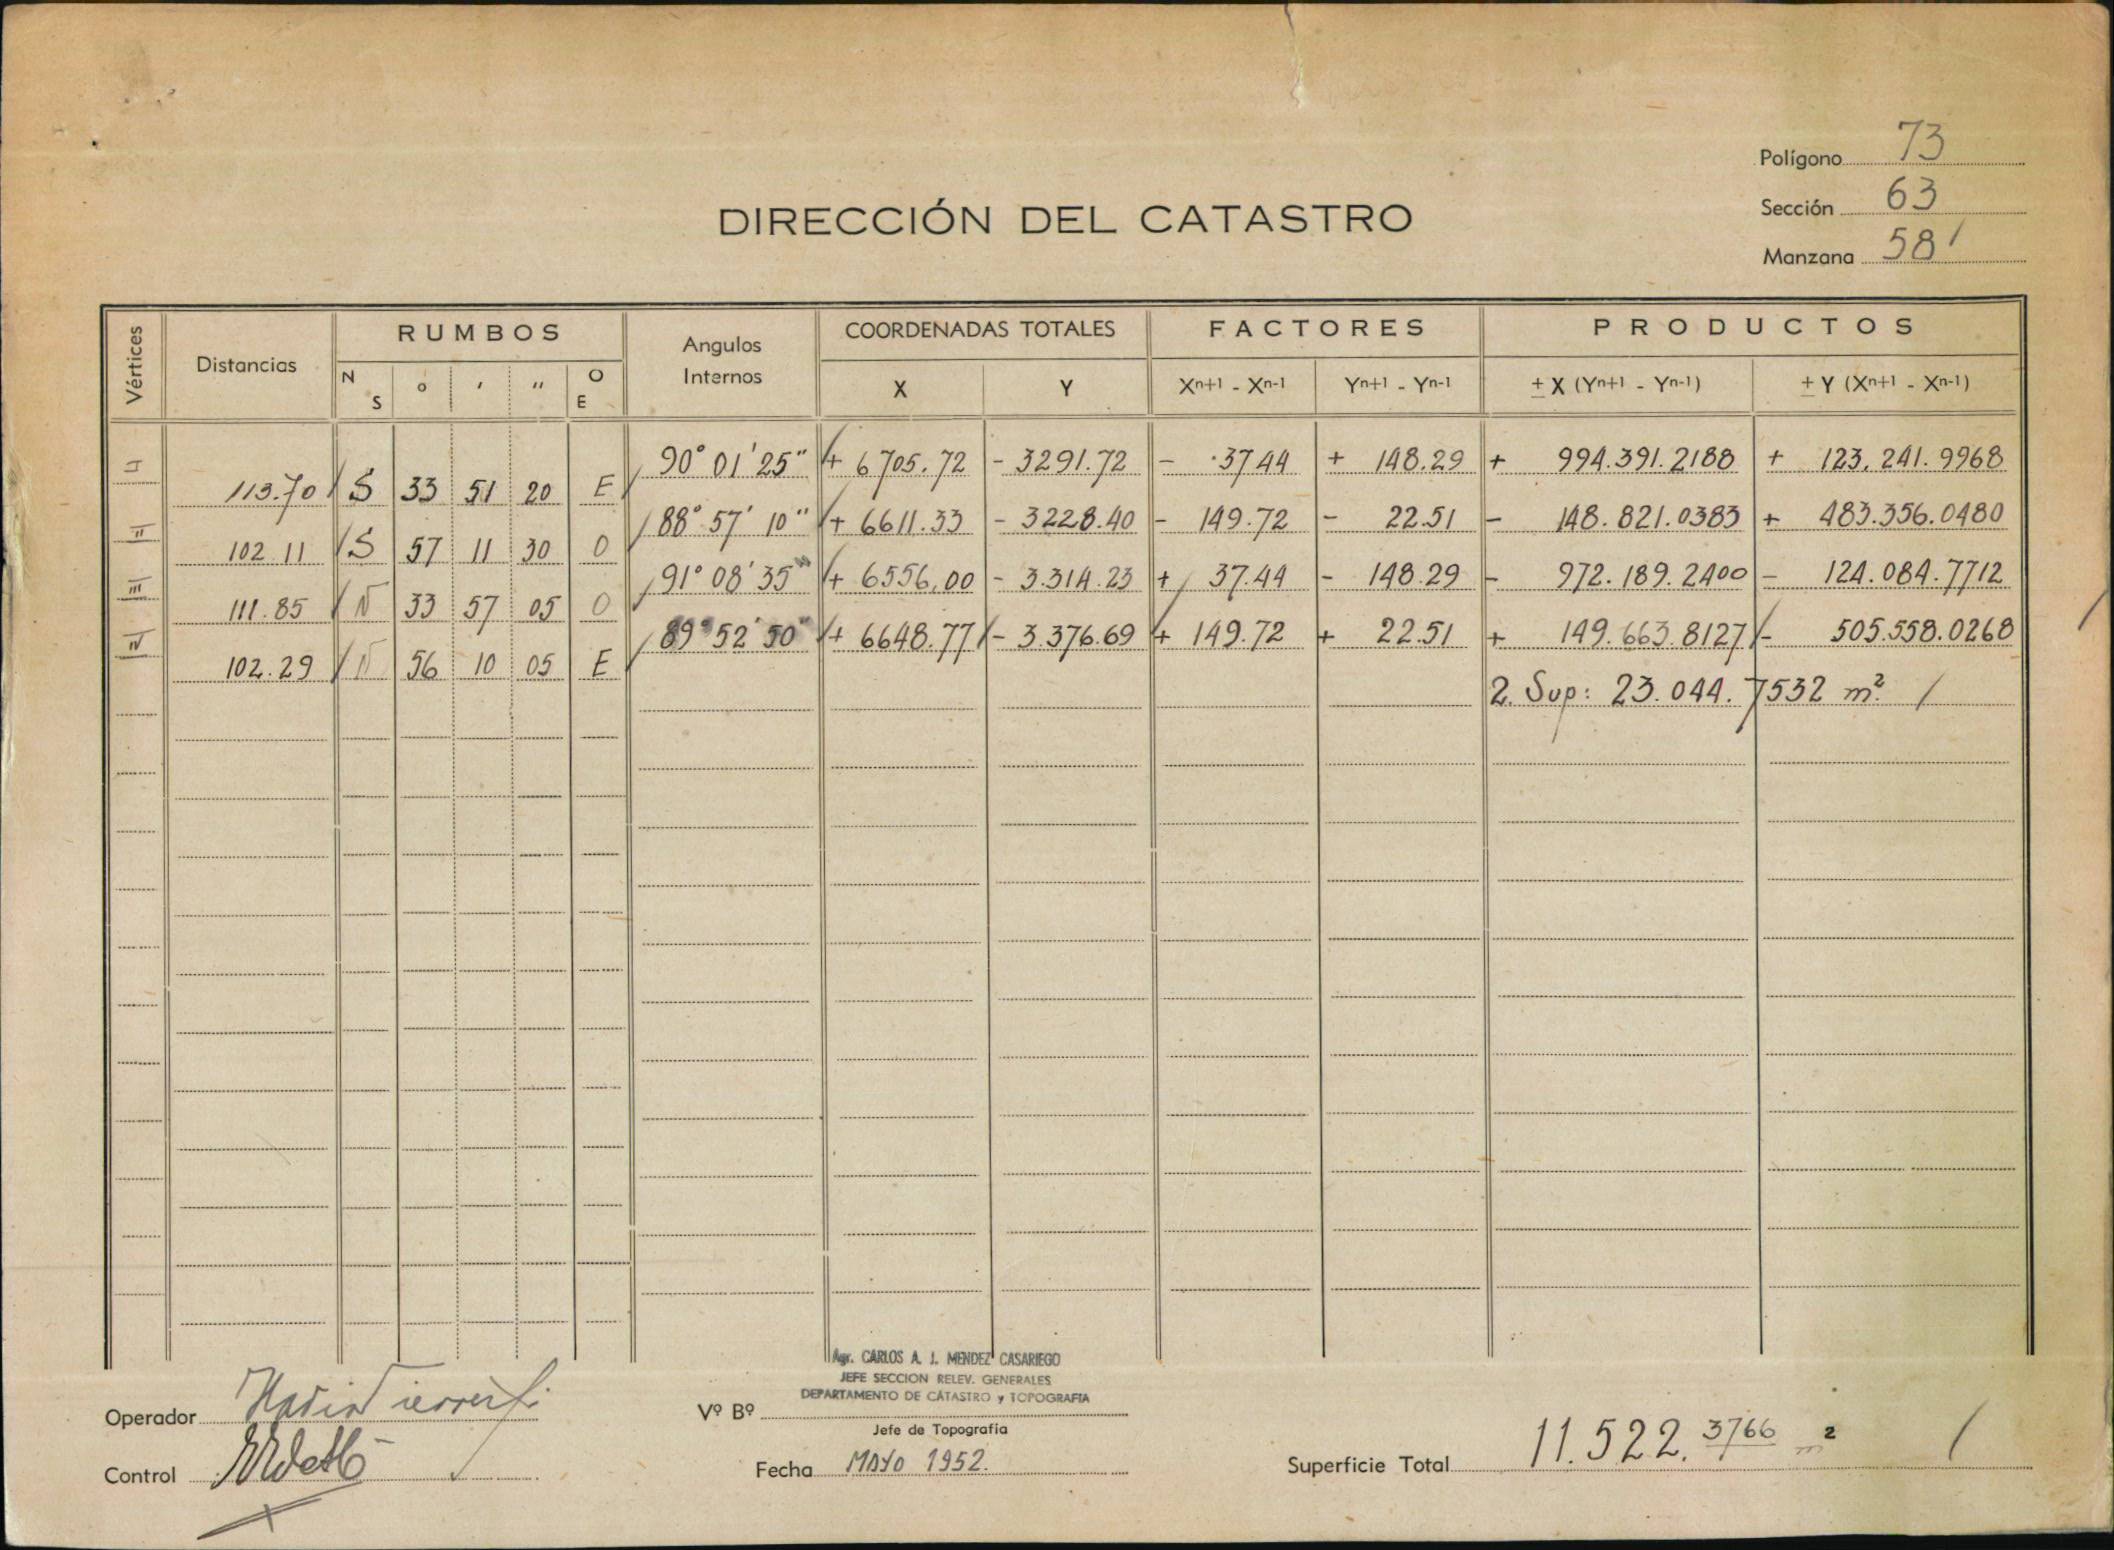 Polígono 73
Sección 63
Manzana 58
DIRECCIÓN DEL CATASTRO
Vértices Distancias RUMBOS Angulos Internos COORDENADAS TOTALES FACTORES PRODUCTOS
N S ° ' '' O E X Y Xn+1 - Xn-1 Yn+1 - Yn-1 ± X (Yn+1 - Yn-1) ± Y (Xn+1 - Xn-1)
90° 01' 25" + 6705.72 - 3291.72 - 37.44 + 148.29 + 994.391.2188 + 123.241.9968
113.70 S 33 51 20 E
II 88° 57' 10" + 6611.33 - 3228.40 - 149.72 - 22.51 - 148.821.0383 + 483.356.0480
102.11 S 57 11 30 O
III 91° 08' 35" + 6556,00 - 3.314.23 + 37.44 - 148.29 - 972.189.2400 - 124.084.7712
111.85 N 33 57 05 O
IV 89° 52' 50" + 6648.77 - 3.376.69 + 149.72 + 22.51 + 149.663.8127 - 505.558.0268
102.29 N 56 10 05 E
2. Sup: 23.044.7532 m².
Agr. CARLOS A. J. MENDEZ CASARIEGO
JEFE SECCION RELEV. GENERALES
DEPARTAMENTO DE CATASTRO y TOPOGRAFIA
Operador
Vº Bº
Jefe de Topografía
Control
Fecha MAYO 1952.
Superficie Total 11.522.3766 m²